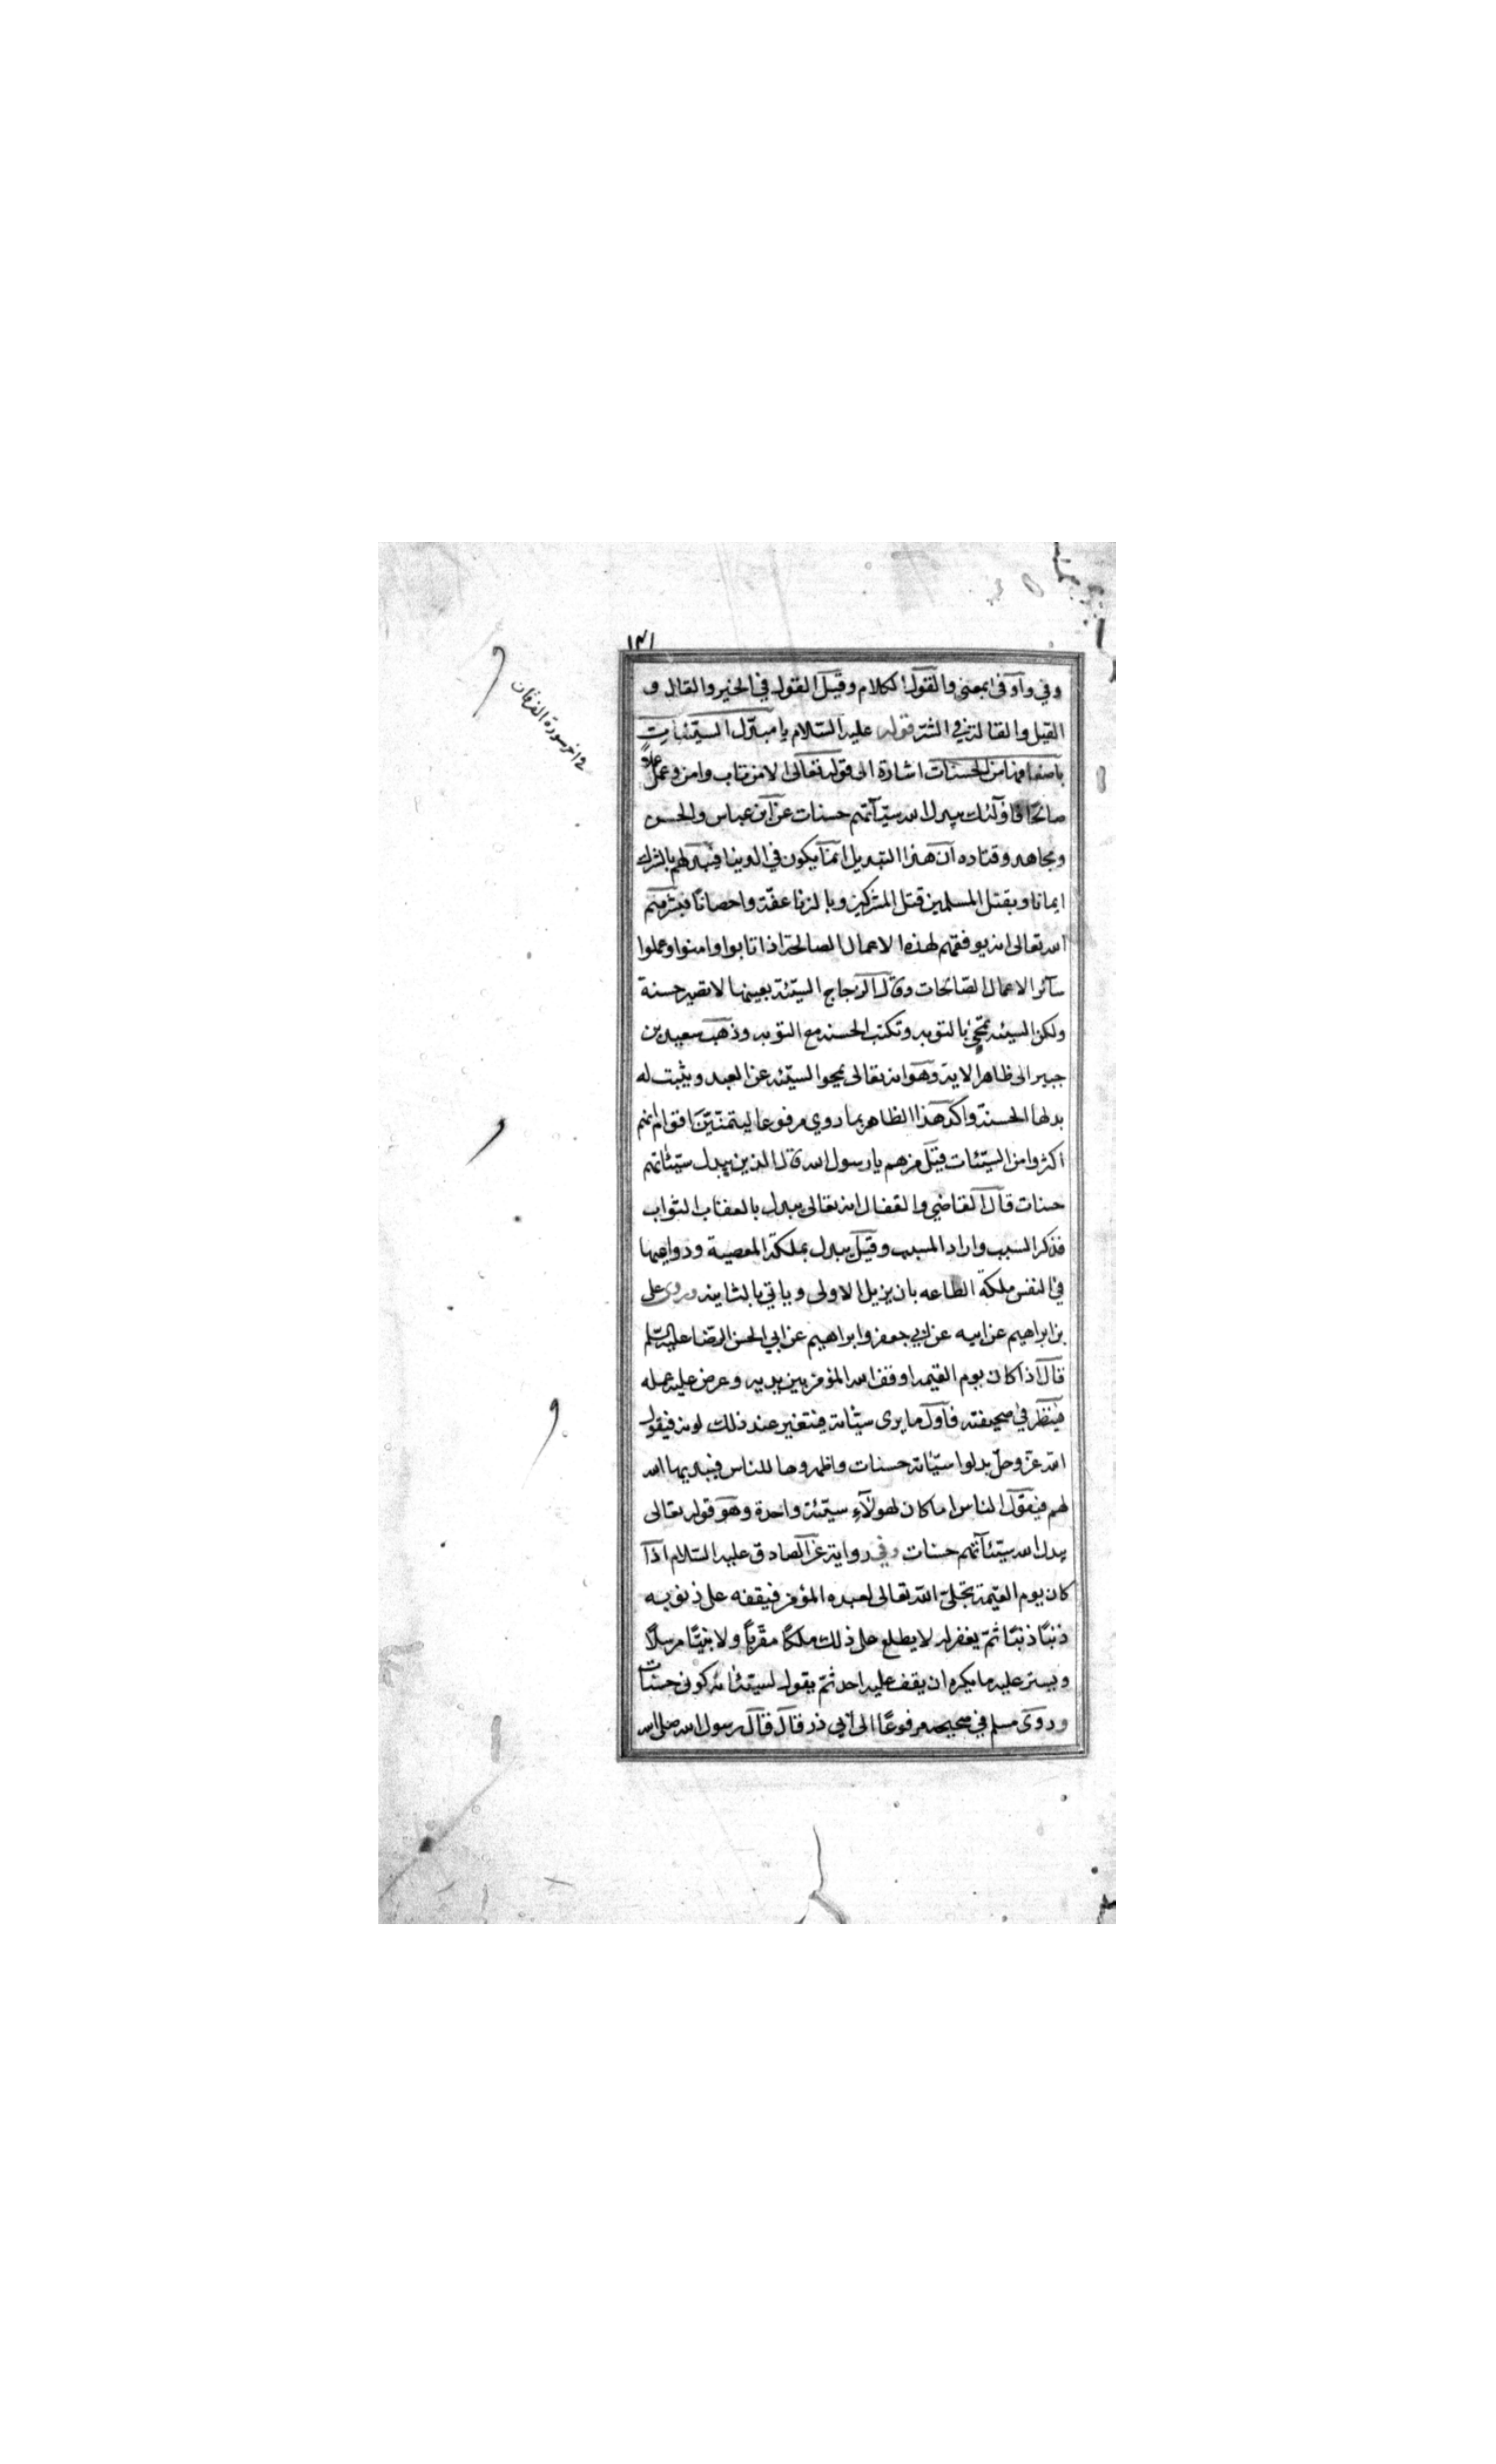 ١٣١
وفي واوفى بمعنى والقول الكلام وقيل القول في الخير والقال و
القيل والقالة في الشر قوله عليه السلام يا مبدل السيئات
باضعافها من الحسنات اشارة الى قوله تعالى الا من تاب وامن وعمل عملا
صالحا فاولئك يبدل الله سيآتهم حسنات عن ابن عباس والحسن
ومجاهد وقتاده ان هذا التبديل انما يكون في الدنيا فيبدلهم بالشرك
ايمانا وبقتل المسلمين قتل المشركين وبالزنا عفة واحصانا فبشرهم
الله تعالى انه يوفقهم لهذه الاعمال الصالحة اذا تابوا وامنوا وعملوا
سائر الاعمال الصالحات وقال الزجاج السيئة بعينها لا تصير حسنة
ولكن السيئة تمحى بالتوبه وتكتب الحسنه مع التوبه وذهب سعيد بن
جبير الى ظاهر الاية وهو انه تعالى يمحوا السيئه عن العبد ويثبت له
بدلها الحسنة واكد هذا الظاهر بما روي مرفوعا ليتمنين اقوام انهم
اكثروا من السيئات قيل من هم يا رسول الله قال الذين يبدل سيئاتهم
حسنات قال القاضي والقفال انه تعالى يبدل بالعقاب الثواب
فذكر السبب واراد المسبب وقيل يبدل بملكة المعصية ودواعيها
في النفس ملكة الطاعه بان يزيل الاولى وياتي بالثانيه وروى على
بن ابراهيم عن ابيه عن ابي جعفر وابراهيم عن ابي الحسن الرضا عليه السلم
قال اذا كان يوم القيمه اوقف الله المؤمن بين يديه وعرض عليه عمله
فينظر في صحيفته فاول ما يرى سيئاته فيتغير عند ذلك لونه فيقول
الله عز وجل بدلوا سيئاته حسنات واظهروها للناس فيبديها الله
لهم فيقول الناس اما كان لهولآء سيئة واحدة وهو قوله تعالى
يبدل الله سيئآتهم حسنات وفي رواية عن الصادق عليه السلام اذا
كان يوم القيمة تجلى الله تعالى لعبده المؤمن فيقفه على ذنوبه
ذنبا ذنبا ثم يغفر له لا يطلع على ذلك ملكا مقربا ولا نبيا مرسلا
ويستر عليه ما يكره ان يقف عليه احد ثم يقول لسيئاته كوني حسنات
وروى مسلم في صحيحه مرفوعا الى ابي ذر قال قال رسول الله صلى الله
في اخر سورة الفرقان